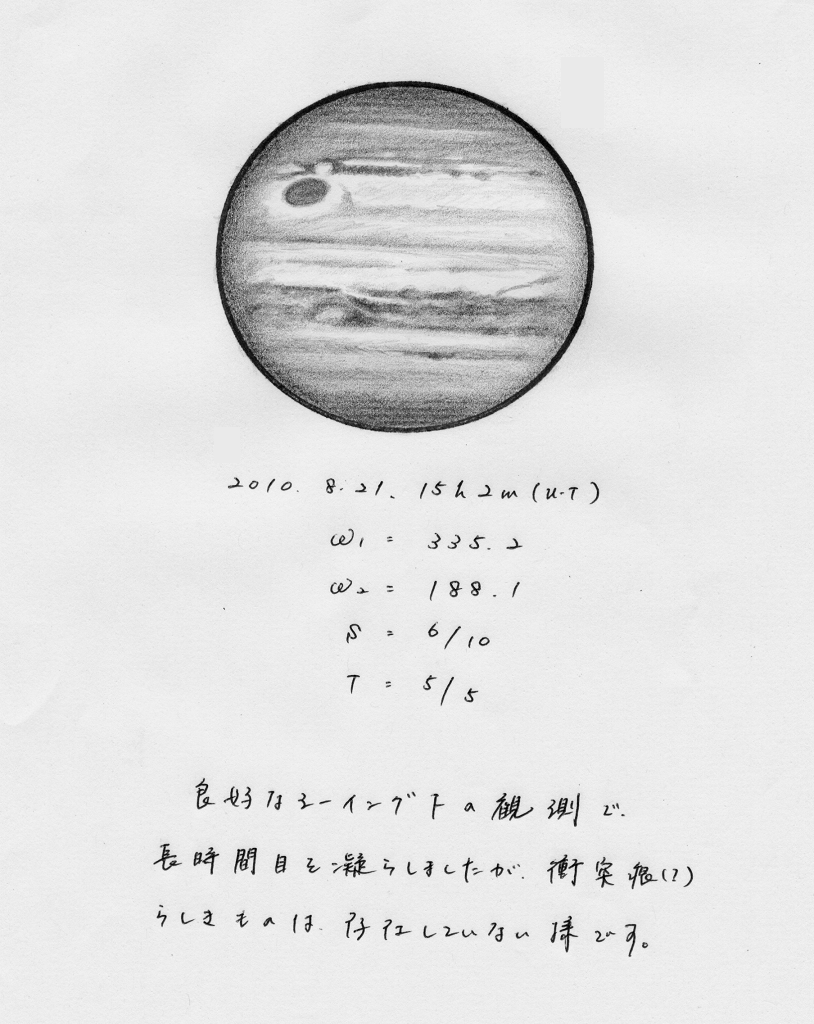 2010. 8. 21. 15h 2m (U.T)
ω₁ = 335.2
ω₂ = 188.1
S = 6/10
T = 5/5
良好なシーイング下の観測で、
長時間目を凝らしましたが、衝突痕(?)
らしきものは、存在していない様です。